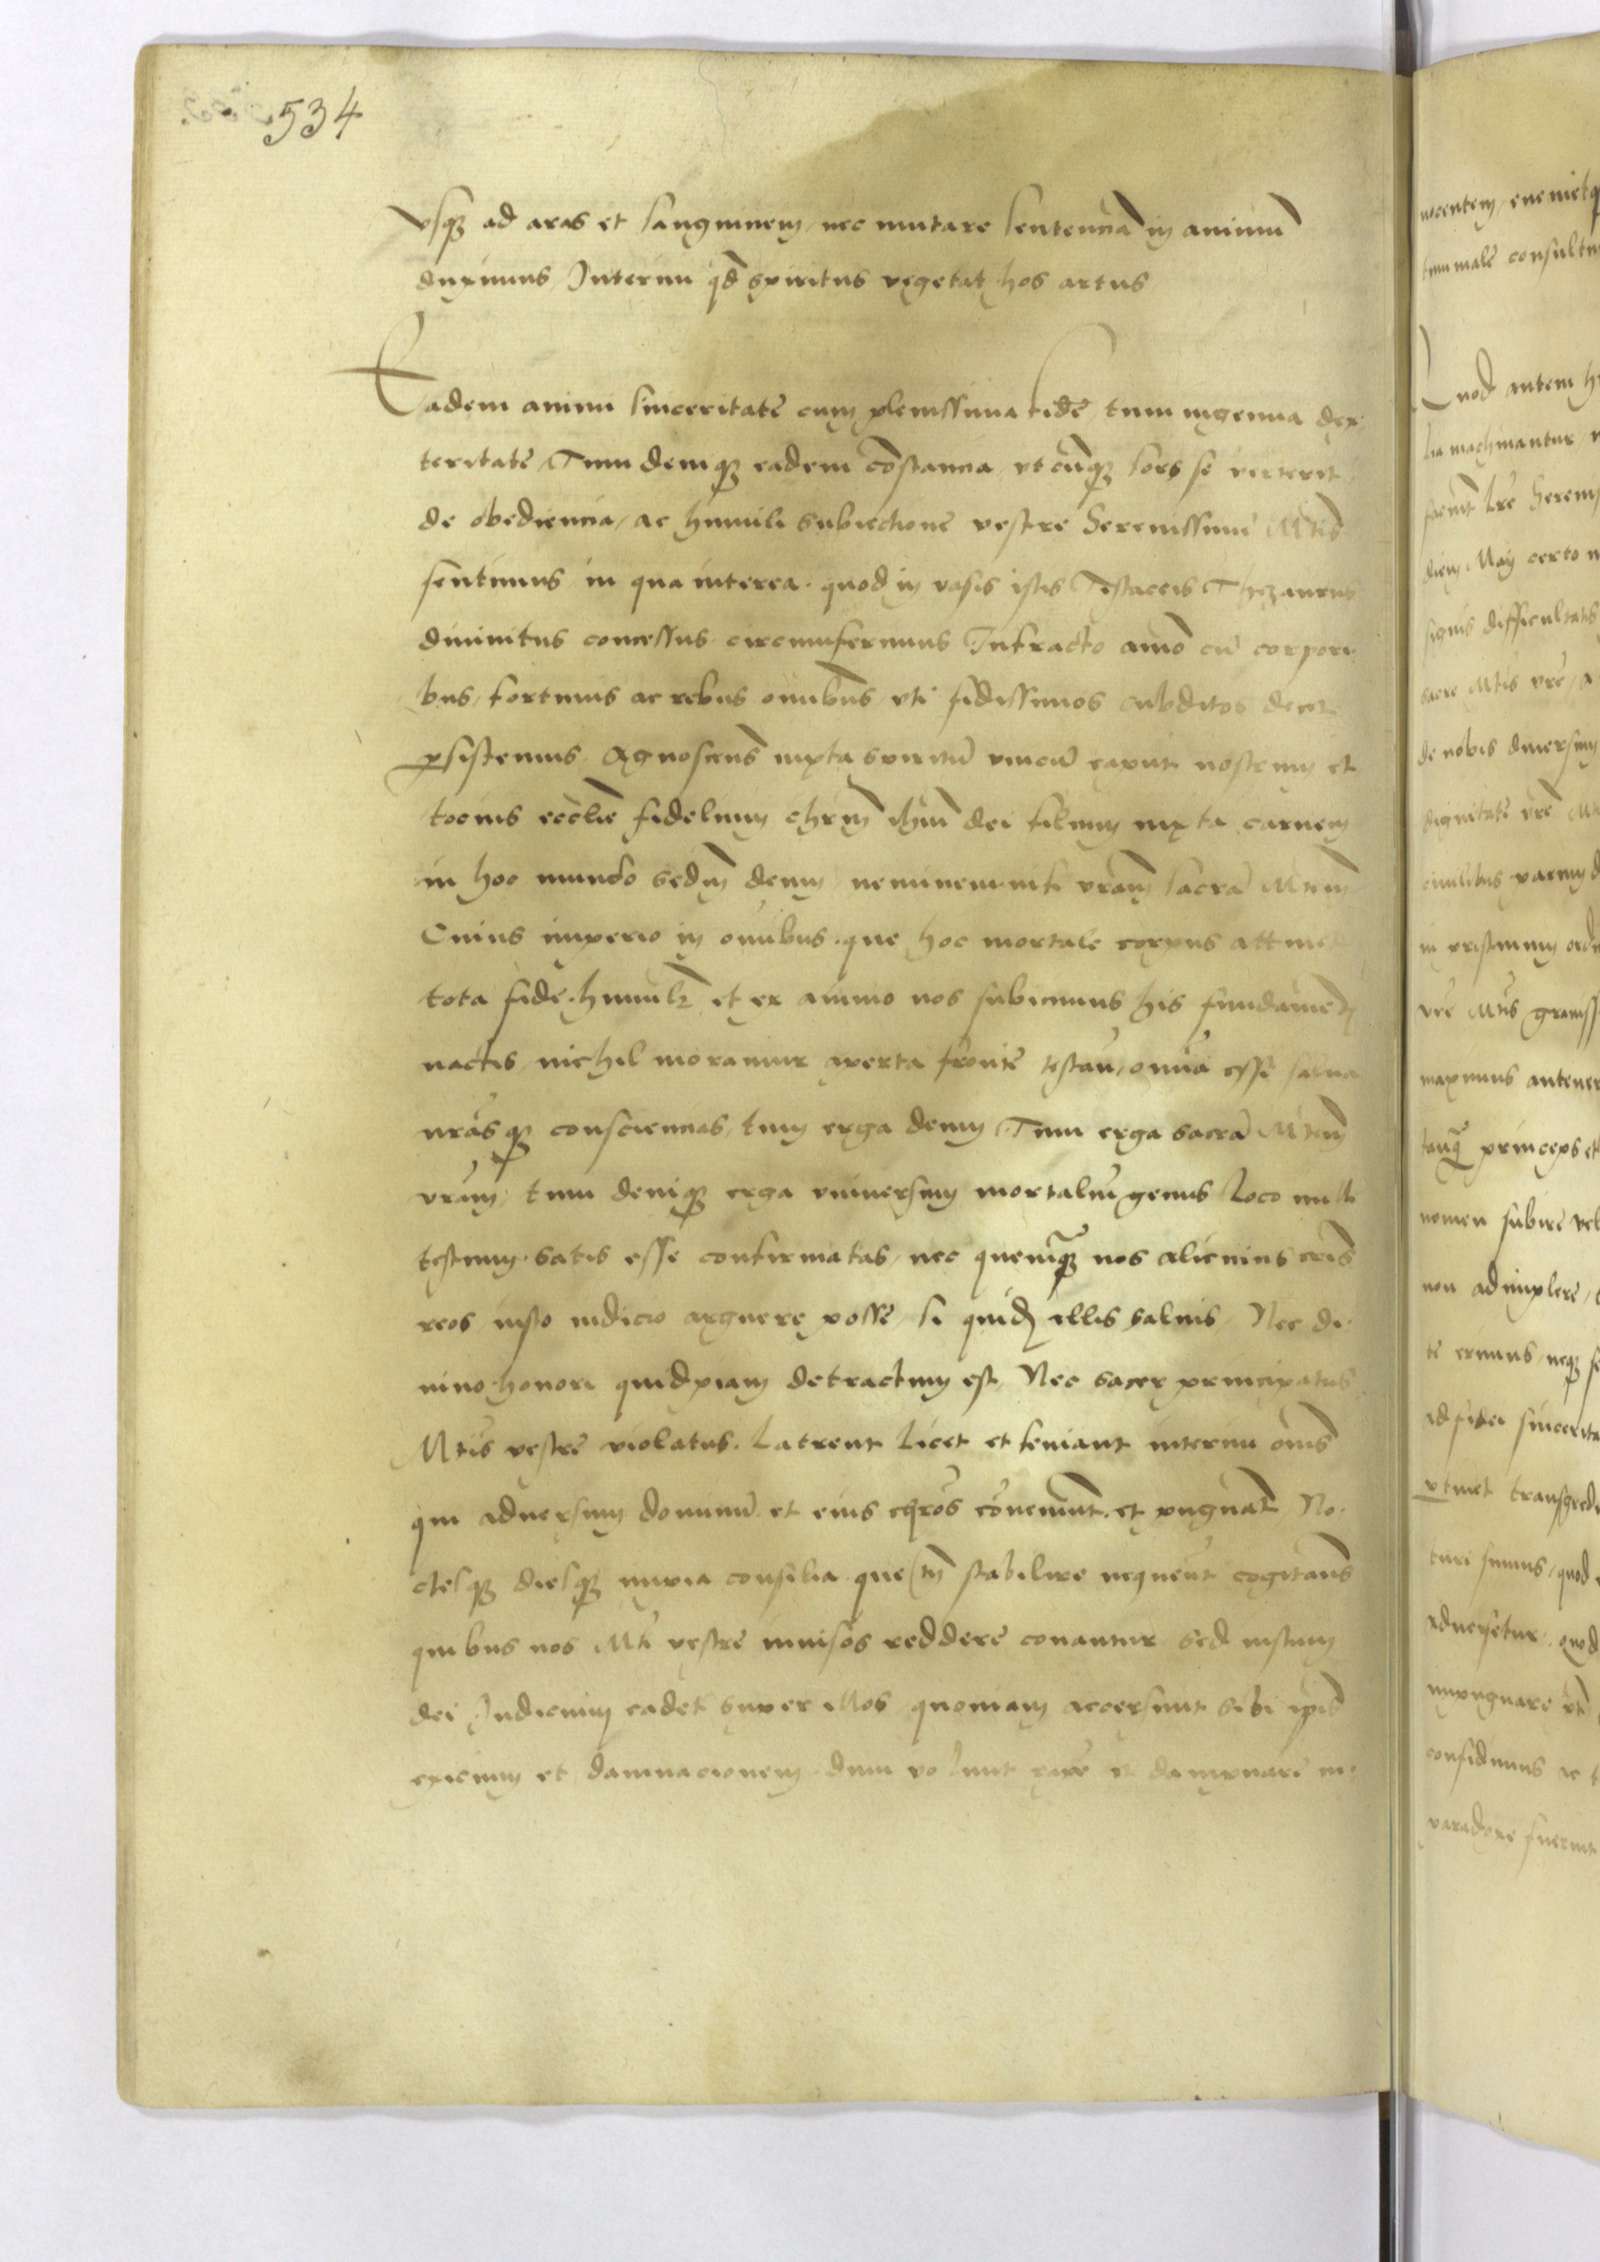 534
vsque ad aras et sanguinem, nec mutare sentenciã in animũ
duximus Interim qđ spiritus vegetat hos artus
Eadem animi sinceritate cum plenissima fide, tum ingenua dex-
teritate, Tum demque eadem cõstancia, vtcũque sors se verterit,
de obediencia, ac humili subiectione vestre Serenissime Mtis
sentimus, in qua interea, quod in vasis istis Testaceis Thezaurus
diuinitus concessus circumferimus Infracto aĩo cũ corpori
bus, fortunis ac rebus omnibus vti fidissimos subditos decet
psistemus. Agnoscens iuxta spiritũ vnicũ caput nostrum et
tocius ecclie fidelium chrm ihm dei filium iuxta carnem
in hoc mundo sedm deum, neminem nisi vram sacrã Mtem
Cuius imperio in omibus, que hoc mortale corpus attinet
tota fide, humilr et ex animo nos subicimus his fundamẽt
nactis, nichil moramur aperta fronte testari, omia esse salua
nrãsque consciencias, tum erga deum Tum erga sacrã Mtem
vram, tum denique erga vniuersum mortaliũ genus Loco mille
testium, satis esse confirmatas, nec quemquã nos alicuius cris
reos iusto iudicio arguere posse, si quid illis saluis, Nec di-
uino honori quidpiam detractum est, Nec sacer principatus
Mtis vestre violatus. Latrent Licet et seuiant interim om̃s
qui aduersum dominũ et eius chros cõueniunt et pugnãt No-
ctesque diesque impia consilia que tñ stabilire nequeũt cogitan̄s
quibus nos Mti vestre inuisos reddere conantur sed iustum
dei Judicium cadet super illos quoniam accersunt sibi ipis
exicium et damnacionem dum volunt et dampnare in-
nocentem, euenietq
tum male consultu
Quod autem h
lia machinantur
Lre Serenis
diem Maij certo
signis difficultatis
sacre Mtis vre, a
de nobis diuersum
dignitate vre Mt
in pristinum ord
vre Mtis grauiss
maximus antener
tanq princeps et
nomen subire vel
non adimplere,
te erimus, neque se
ad fidei sincerita
ptinet transgredi
turi sumus, quod
aduersetur, quod
impugnare
confidimus ac
paradoxe fuerint